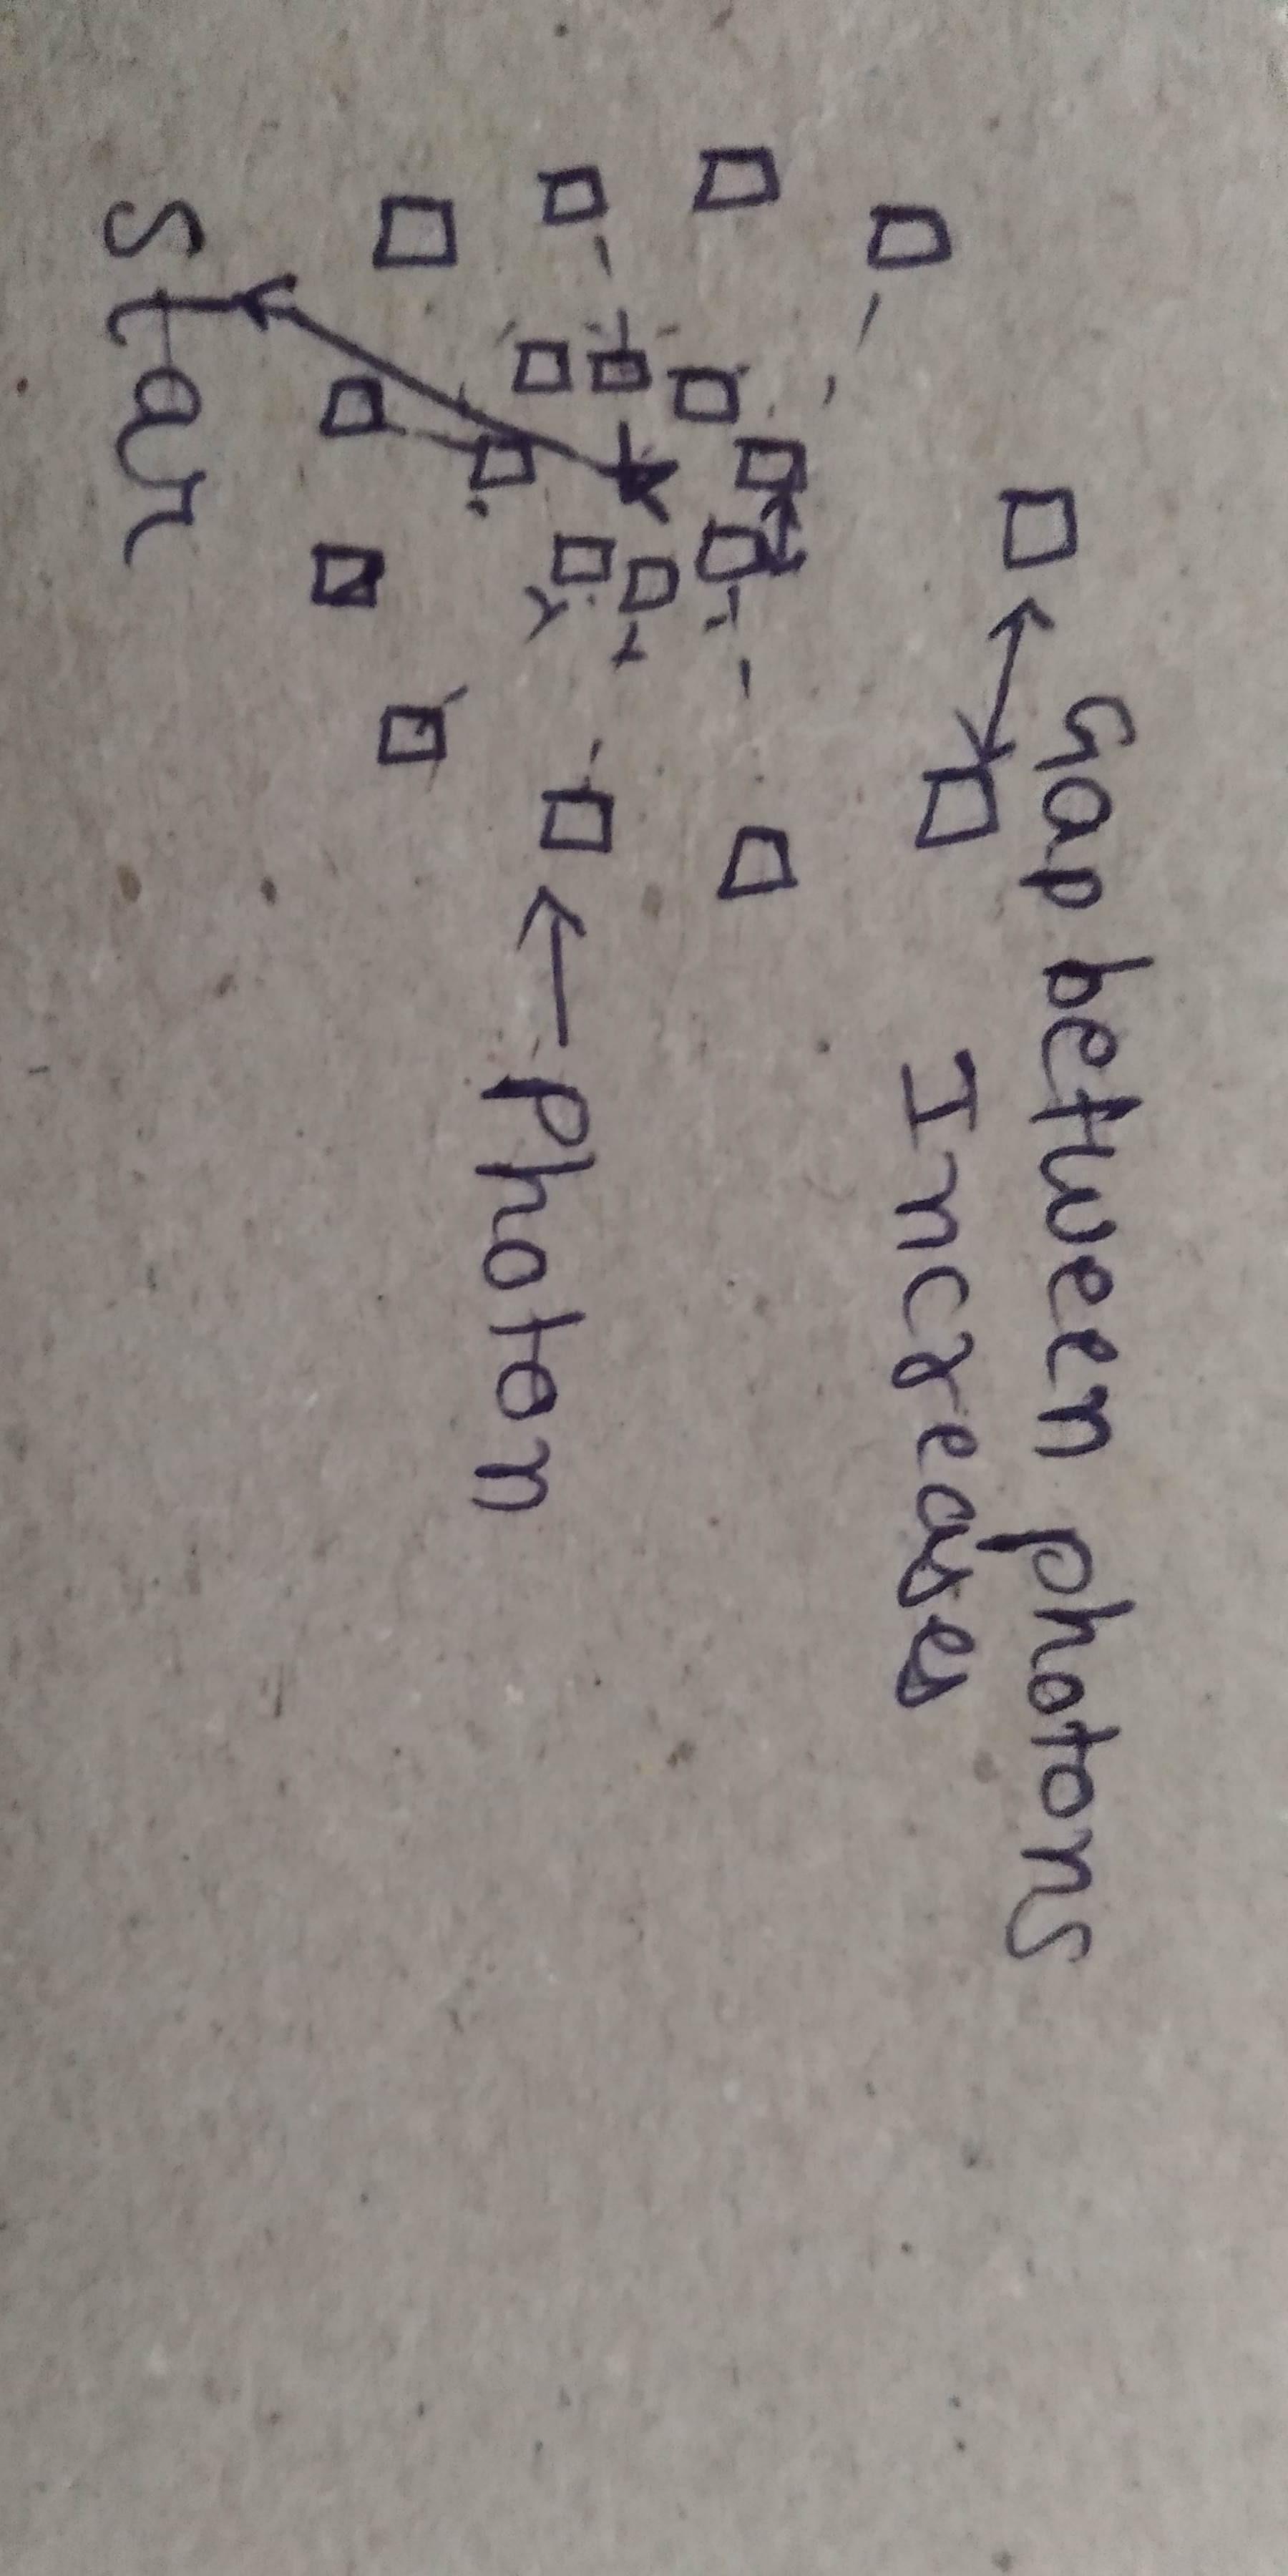 Gap between photons
Increases
Photon
Star